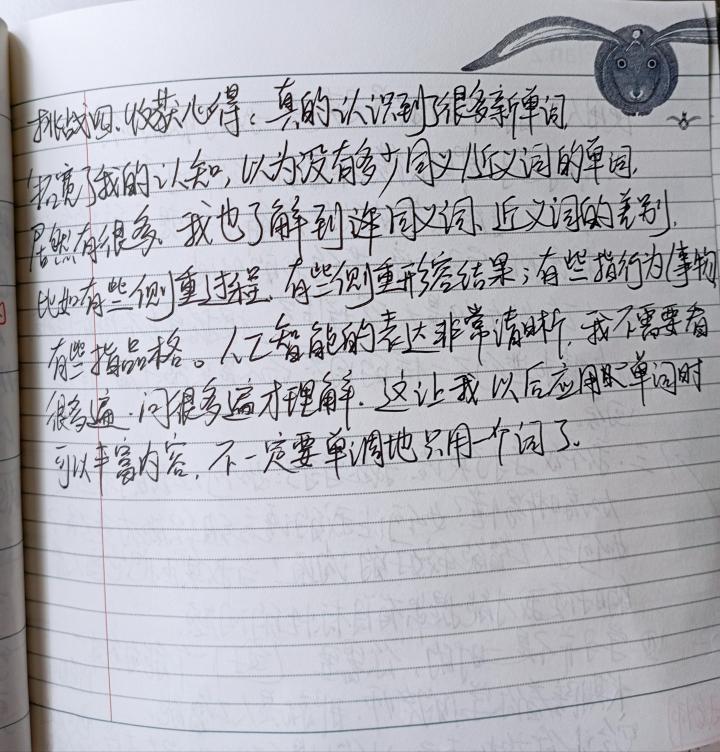 挑战四、收获心得：真的认识到了很多新单词
拓宽了我的认知，以为没有多少同义/近义词的单词，
居然有很多、我也了解到连同义词、近义词的差别，
比如有些侧重过程、有些侧重形容结果；有些指行为/事物
有些指品格。人工智能的表达非常清晰，我不需要看
很多遍、问很多遍才理解．这让我以后应用单词时
可以丰富内容，不一定要单调地只用一个词了。